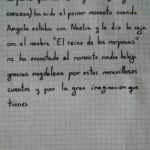 corazon) ha sido el primer momento cuando
Angela estaba con Noelia y le dio la caja
con el nombre "El reino de las mariposas"
me ha encantado el momento
gracias magdalena por estos maravillosos
cuentos y por la gran imaginacion que
tienes